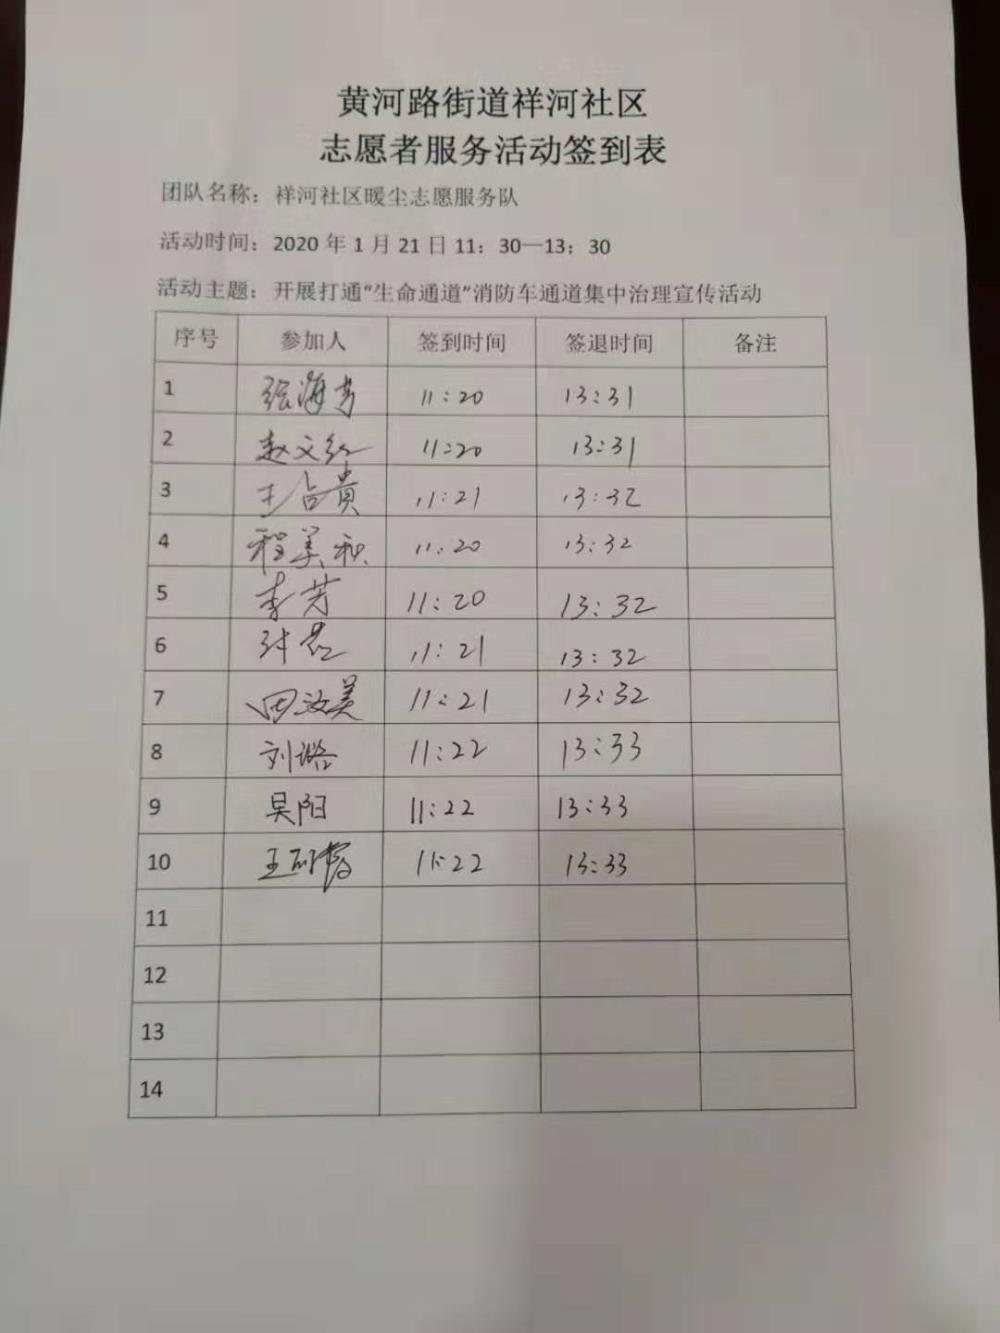 黄河路街道祥河社区
志愿者服务活动签到表
团队名称：祥河社区暖尘志愿服务队
活动时间：2020 年 1 月 21 日 11：30—13：30
活动主题：开展打通“生命通道”消防车通道集中治理宣传活动
序号 参加人 签到时间 签退时间 备注
1 张海 11:20 13:31
2 赵文红 11:20 13:31
3 王占贵 11:21 13:32
4 程美秋 11:20 13:32
5 李芳 11:20 13:32
6 11:21 13:32
7 田汝美 11:21 13:32
8 刘璐 11:22 13:33
9 吴阳 11:22 13:33
10 王 11:22 13:33
11
12
13
14